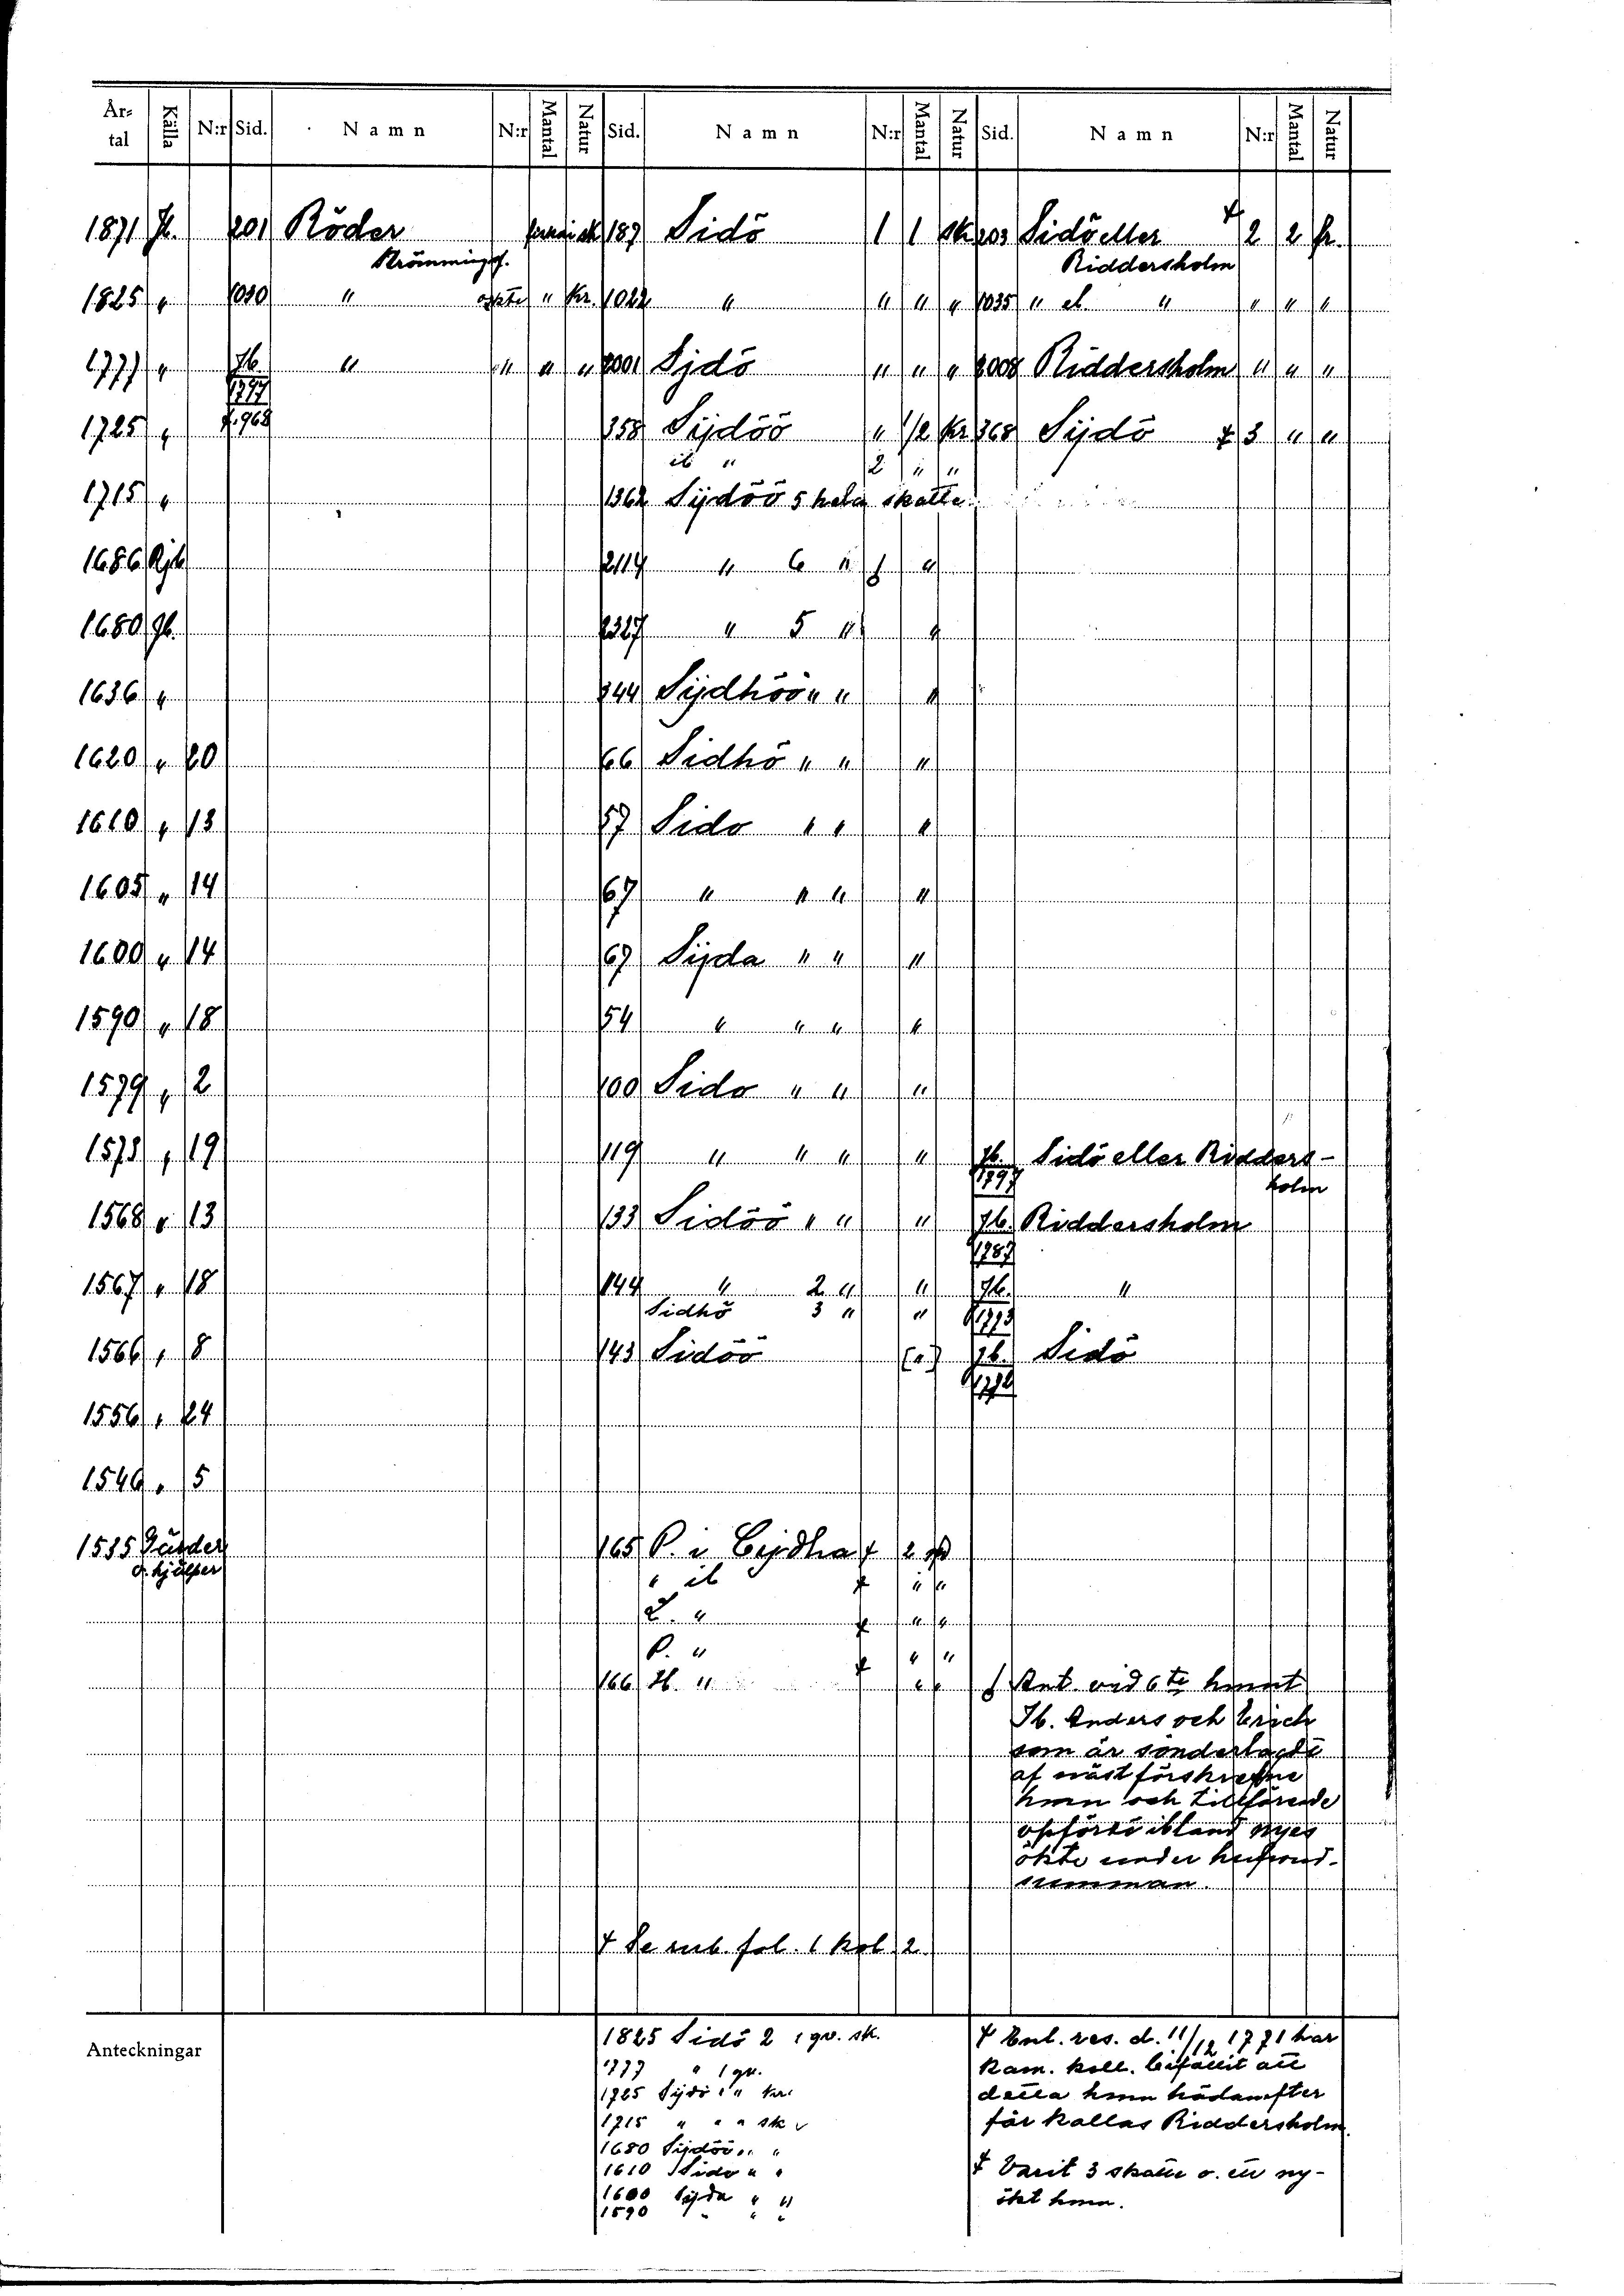 År-tal Källa N:r Sid. Namn N:r Mantal Natur Sid. Namn N:r Mantal Natur Sid. Namn N:r Mantal Natur
1871 Jb. 201 Röder 187 Sidö 1 1 sk 203 Sidö eller 2 2 fr.
Riddersholm
1825 " 1030 " " kr. 1022 " " " " 1035 " el. " " " "
1777 " Jb " " " " 2001 Sjdö " " " 2008 Riddersholm " " "
1797
1725 " f. 968 358 Sijdöö " 1/2 kr 368 Sijdö 3 " "
ib " 2 " "
1715 " 1362 Sijdöö 5 hela skatte
1686 Rjb 2114 " 6 " "
1680 Jb. 2327 " 5 " "
1636 " 344 Sijdhöö " " "
1620 " 20 66 Sidhö " " "
1610 " 13 57 Sido " " "
1605 " 14 67 " " " "
1600 " 14 67 Sijda " " "
1590 " 18 54 " " " "
1579 " 2 100 Sido " " "
1573 " 19 119 " " " " Jb. Sidö eller Ridders-
1797 holm
1568 " 13 133 Sidöö " " " Jb. Riddersholm
1787
1567 " 18 144 " 2 " " Jb. "
Sidhö 3 " "
1566 " 8 143 Sidöö ["] Jb. Sidö
1556 " 24
1546 " 5
1535 Gärder 165 P. i Cijdha 2
o. hjälper
" ib " "
" " "
P. " " "
166 H. " " "
Ant. vid 6te hmnt
Jb. Anders och Erich
som är sönderlagde
af näst förskrefne
hmn och tillförende
opförde ibland nyes
ökte under
summan.
Se sub. fol. 1 kol 2
Anteckningar
1825 Sidö 2 1 gv. sk.
1777 " 1 gv.
1725 Sijdö " " kr.
1715 " " " sk
1680 Sijdöö " "
1610 Sido " "
1600 Sijda " "
1590 " " "
Enl. res. d. 11/12 1771 har
Kam. koll. bifallit att
detta hmn hädanefter
får kallas Riddersholm.
Varit 3 skatte o. ett ny-
ökt hmn.